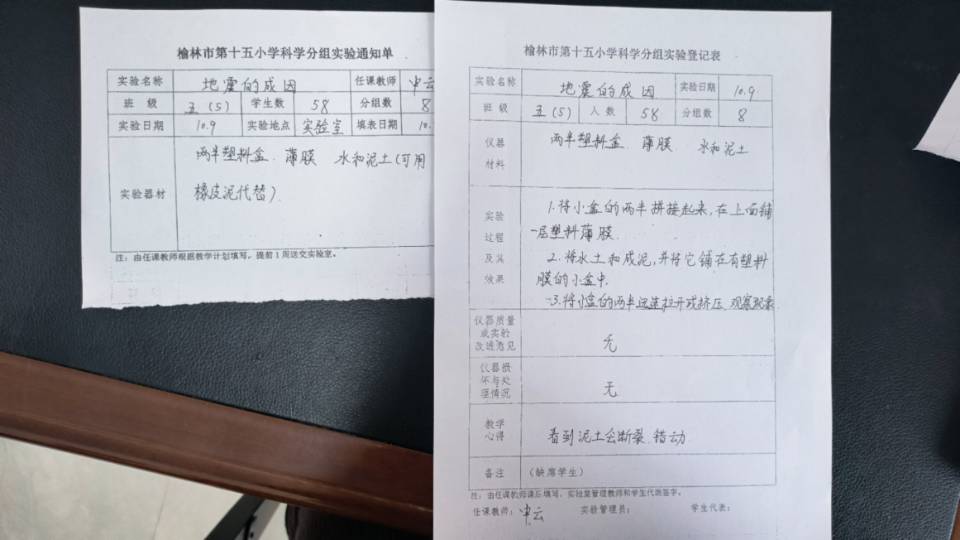 榆林市第十五小学科学分组实验通知单
实验名称 地震的成因 任课教师
班 级 五(5) 学生数 58 分组数 8
实验日期 10.9 实验地点 实验室 填表日期 10.
实验器材
两半塑料盒 薄膜 水和泥土(可用
橡皮泥代替)
注:由任课教师根据教学计划填写,提前1周送交实验室。
榆林市第十五小学科学分组实验登记表
实验名称 地震的成因 实验日期 10.9
班 级 五(5) 人 数 58 分组数 8
仪器
材料
两半塑料盒 薄膜 水和泥土
实验
过程
及其
效果
1.将小盒的两半拼接起来,在上面铺
一层塑料薄膜
2.将水土和成泥,并将它铺在有塑料
膜的小盒中.
3.将小盒的两半迅速拉开或挤压 观察现象
仪器质量
或实验
改进意见
无
仪器损
坏与处
理情况
无
教学
心得
看到泥土会断裂 错动
备注 (缺席学生)
注:由任课教师课后填写,实验室管理教师和学生代表签字。
任课教师: 实验管理员: 学生代表: